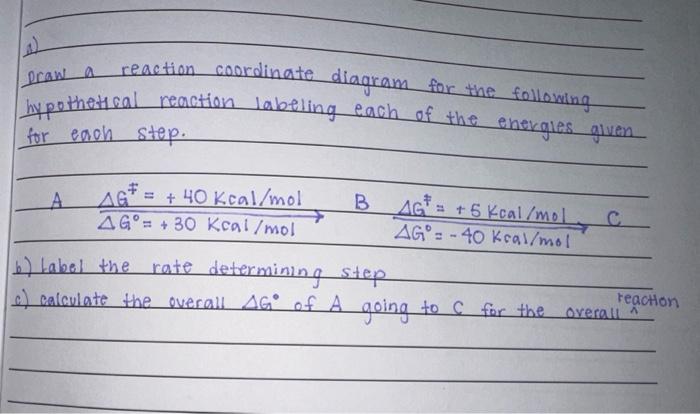 a)
Draw a reaction coordinate diagram for the following
hypothetical reaction labeling each of the energies given
for each step.
A ΔG‡ = + 40 Kcal/mol B ΔG‡ = +5 Kcal/mol C
ΔG° = + 30 Kcal/mol ΔG° = - 40 Kcal/mol
b) Label the rate determining step
c) calculate the overall ΔG° of A going to C for the overall ^ reaction